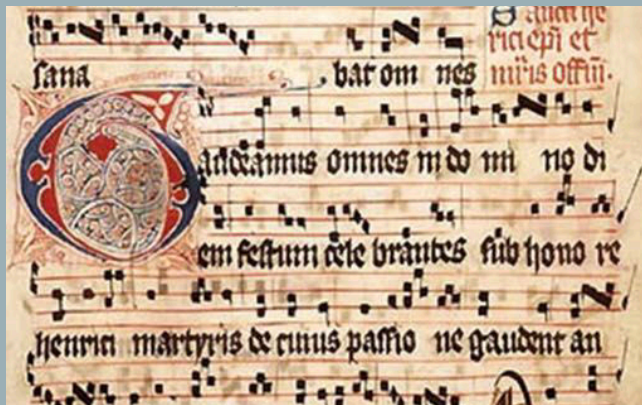 Sancti he
rici epi et
mris offm.
sana bat om nes
Gaudeamus omnes in do mi no di
em festum cele brantes sub hono re
henrici martyris de cuius passio ne gaudent an